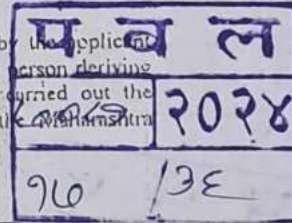 by the applicant
प व ल
person deriving
carried out the
Maharashtra
२०२४
१७ /३६